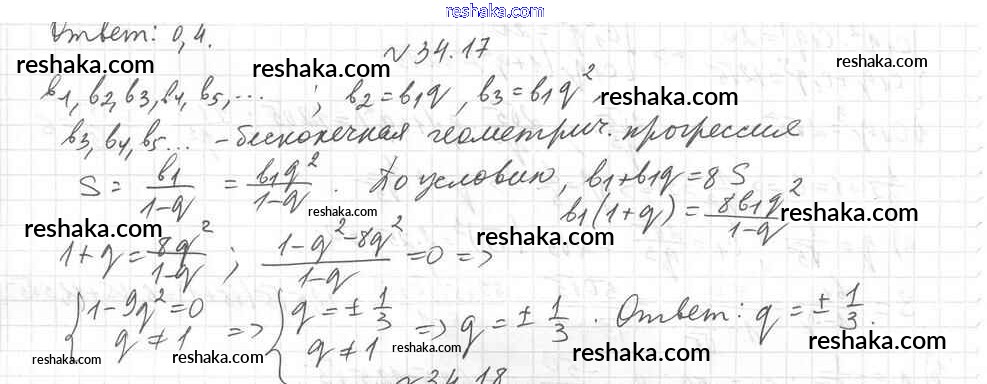 reshaka.com
Ответ: 0,4.
№34.17
reshaka.com reshaka.com
b1, b2, b3, b4, b5, ... ; b2 = b1q, b3 = b1q²
reshaka.com
b3, b4, b5... - бесконечная геометрич. прогрессия
S = b1/(1-q) = b1q²/(1-q). По условию, b1+b1q = 8S
reshaka.com reshaka.com
b1(1+q) = 8b1q²/(1-q)
reshaka.com reshaka.com
1+q = 8q²/(1-q); (1-q²-8q²)/(1-q) = 0 =>
{1-9q²=0 q≠1 => {q=±1/3 q≠1 => q=±1/3. Ответ: q=±1/3.
reshaka.com reshaka.com reshaka.com reshaka.com
№34.18